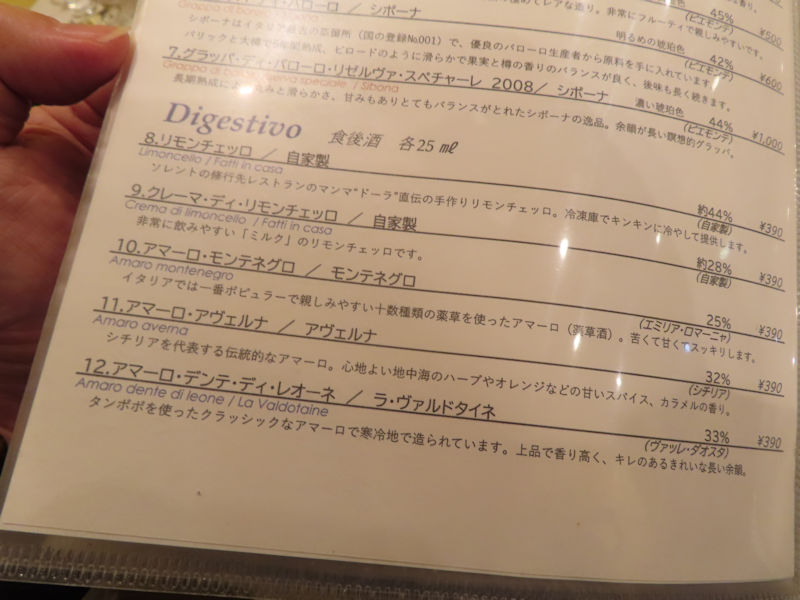 ディ・バローロ / シボーナ
極めてレアな造り。非常にフルーティで親しみやすいです。
45%
(ピエモンテ)
¥500
シボーナはイタリア最古の蒸留所（国の登録№001）で、優良のバローロ生産者から原料を手に入れています
明るめの琥珀色
42%
(ピエモンテ)
¥600
バリックと大樽で5年熟成、ビロードのように滑らかで果実と樽の香りのバランスが良く、後味も長く続きます。
7.グラッパ・ディ・バローロ・リゼルヴァ・スペチャーレ 2008 / シボーナ
濃い琥珀色
44%
(ピエモンテ)
¥1,000
speciale / Sibona
甘みもありとてもバランスがとれたシボーナの逸品。余韻が長い瞑想的グラッパ。
Digestivo 食後酒 各25㎖
8.リモンチェッロ / 自家製
約44%
(自家製)
¥390
Limoncello / Fatti in casa
ソレントの修行先レストランのマンマ“ドーラ”直伝の手作りリモンチェッロ。冷凍庫でキンキンに冷やして提供します。
9.クレーマ・ディ・リモンチェッロ / 自家製
約28%
(自家製)
¥390
Crema di limoncello / Fatti in casa
非常に飲みやすい「ミルク」のリモンチェッロです。
10.アマーロ・モンテネグロ / モンテネグロ
25%
(エミリア・ロマーニャ)
¥390
Amaro montenegro
イタリアでは一番ポピュラーで親しみやすい十数種類の薬草を使ったアマーロ（薬草酒）。苦くて甘くてスッキリします。
11.アマーロ・アヴェルナ / アヴェルナ
32%
(シチリア)
¥390
Amaro averna
シチリアを代表する伝統的なアマーロ。心地よい地中海のハーブやオレンジなどの甘いスパイス、カラメルの香り。
12.アマーロ・デンテ・ディ・レオーネ / ラ・ヴァルドタイネ
33%
(ヴァッレ・ダオスタ)
¥390
Amaro dente di leone / La Valdotaine
タンポポを使ったクラッシックなアマーロで寒冷地で造られています。上品で香り高く、キレのあるきれいな長い余韻。